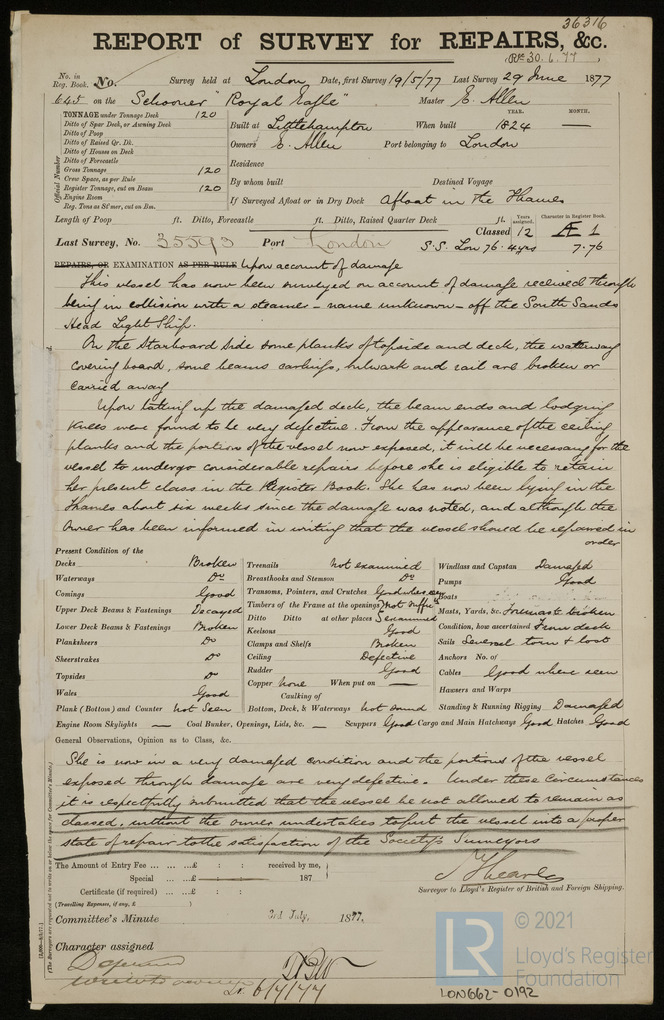 36316
REPORT of SURVEY for REPAIRS, &c.
30.6.77
No. in Reg. Book. No. Survey held at London Date, first Survey 19/5/77 Last Survey 29 June 1877
645 on the Schooner "Royal Eagle" Master E. Allen
TONNAGE under Tonnage Deck 120
Ditto of Spar Deck, or Awning Deck
Ditto of Poop
Ditto of Raised Qr. Dk.
Ditto of Houses on Deck
Ditto of Forecastle
Gross Tonnage 120
Crew Space, as per Rule
Register Tonnage, cut on Beam 120
Engine Room
Reg. Tons as St'mer, cut on Bm.
Official Number
YEAR. MONTH.
Built at Littlehampton When built 1824 —
Owners E. Allen Port belonging to London
Residence
By whom built Destined Voyage
If Surveyed Afloat or in Dry Dock Afloat in the Thames
Length of Poop ft. Ditto, Forecastle ft. Ditto, Raised Quarter Deck ft. Years assigned. Character in Register Book.
Last Survey, No. 35593 Port London Classed 12 Æ 1
S.S. Lon 76. 4yrs 7.76
REPAIRS, OR EXAMINATION AS PER RULE Upon account of damage
This vessel has now been surveyed on account of damage received through
being in collision with a steamer - name unknown - off the South Sands
Head Light Ship.
On the Starboard side some planks of topside and deck, the waterway
covering board, some beams carlings, bulwark and rail are broken or
carried away
Upon taking up the damaged deck, the beam ends and lodging
knees were found to be very defective. From the appearance of the ceiling
planks and the portion of the vessel now exposed, it will be necessary for the
vessel to undergo considerable repairs before she is eligible to retain
her present class in the Register Book. She has now been lying in the
Thames about six weeks since the damage was noted, and although the
Owner has been informed in writing that the vessel should be repaired in
order
Present Condition of the
Decks Broken
Waterways Do
Comings Good
Upper Deck Beams & Fastenings Decayed
Lower Deck Beams & Fastenings Broken
Planksheers Do
Sheerstrakes Do
Topsides Do
Wales Good
Plank (Bottom) and Counter Not Seen
Treenails Not examined
Breasthooks and Stemson Do
Transoms, Pointers, and Crutches Good where seen
Timbers of the Frame at the openings Not suffic
Ditto Ditto at other places examined
Keelsons Good
Clamps and Shelfs Broken
Ceiling Defective
Rudder Good
Copper None When put on —
Caulking of
Bottom, Deck, & Waterways Not sound
Windlass and Capstan Damaged
Pumps Good
Boats
Masts, Yards, &c. Foremast broken
Condition, how ascertained From deck
Sails Several torn & lost
Anchors No. of
Cables Good where seen
Hawsers and Warps
Standing & Running Rigging Damaged
Engine Room Skylights — Coal Bunker, Openings, Lids, &c. — Scuppers Good Cargo and Main Hatchways Good Hatches Good
General Observations, Opinion as to Class, &c.
She is now in a very damaged condition and the portions of the vessel
exposed through damage are very defective. Under these circumstances
it is respectfully submitted that the vessel be not allowed to remain as
classed, without the owner undertakes to put the vessel into a proper
state of repair to the satisfaction of the Society's Surveyors
The Amount of Entry Fee ... ... ...£ : : received by me,
Special ... ...£ : : 187
Certificate (if required) ... ...£ : :
(Travelling Expenses, if any, £ )
Surveyor to Lloyd's Register of British and Foreign Shipping.
Committee's Minute 3rd July, 1877.
Character assigned
6/7/77
(The Surveyors are requested not to write on or below the space for Committee's Minute.)
© 2021
LR
Lloyd's Register
Foundation
LON662-0192